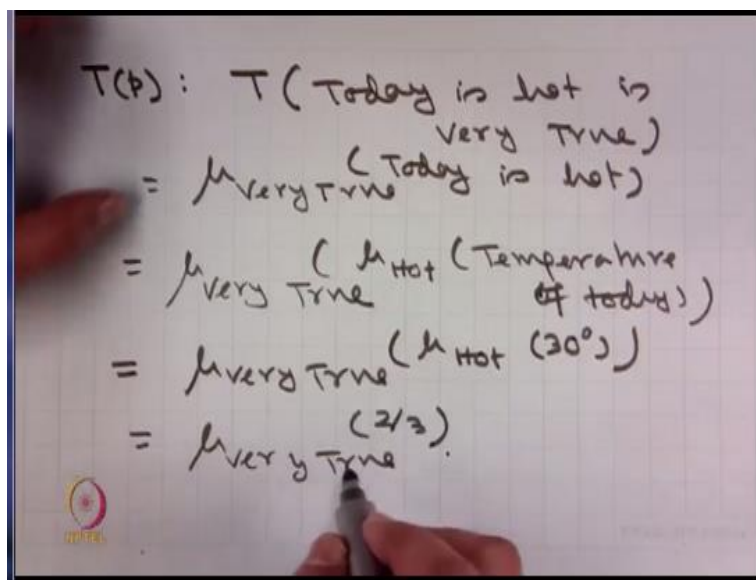 T(p): T(Today is hot is
very True)
= μvery True(Today is hot)
= μvery True(μHot(Temperature
of today))
= μvery True(μHot(30°))
= μvery True(2/3).
NPTEL